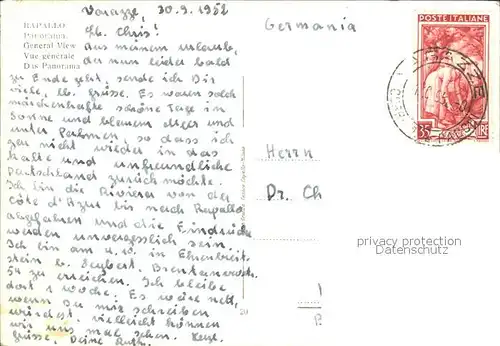 Varazze, 30.9.1952
RAPALLO
Panorama
General View
Vue générale
Das Panorama
Lb. Chris!
Aus meinem Urlaub,
der nun leider bald
zu Ende geht, sende ich Dir
viele, lb. Grüsse. Es waren solch
märchenhafte schöne Tage in
Sonne und blauem Meer und
unter Palmen, so dass ich
gar nicht wieder in das
kalte und unfreundliche
Deutschland zurück möchte.
Ich bin die Riviera von der
Côte d'Azur bis nach Rapallo
abgefahren und die Eindrücke
werden unvergesslich sein.
Ich bin am 4.10. in Ehrenbreit-
stein b. Seybert, Brentanostr.
54 zu erreichen. Ich bleibe
dort 1 Woche. Es wäre nett,
wenn Du mir schreiben
würdest. Vielleicht können
wir uns mal sehen. Herzl.
Grüsse, Deine Ruth.
20
Germania
Herrn
Dr. Ch
POSTE ITALIANE
35 LIRE
privacy protection
Datenschutz